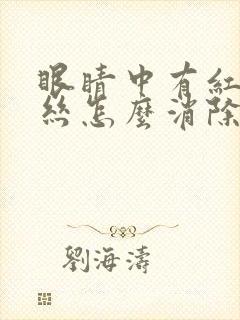 眼睛中有紅
絲怎麼消除
劉海濤